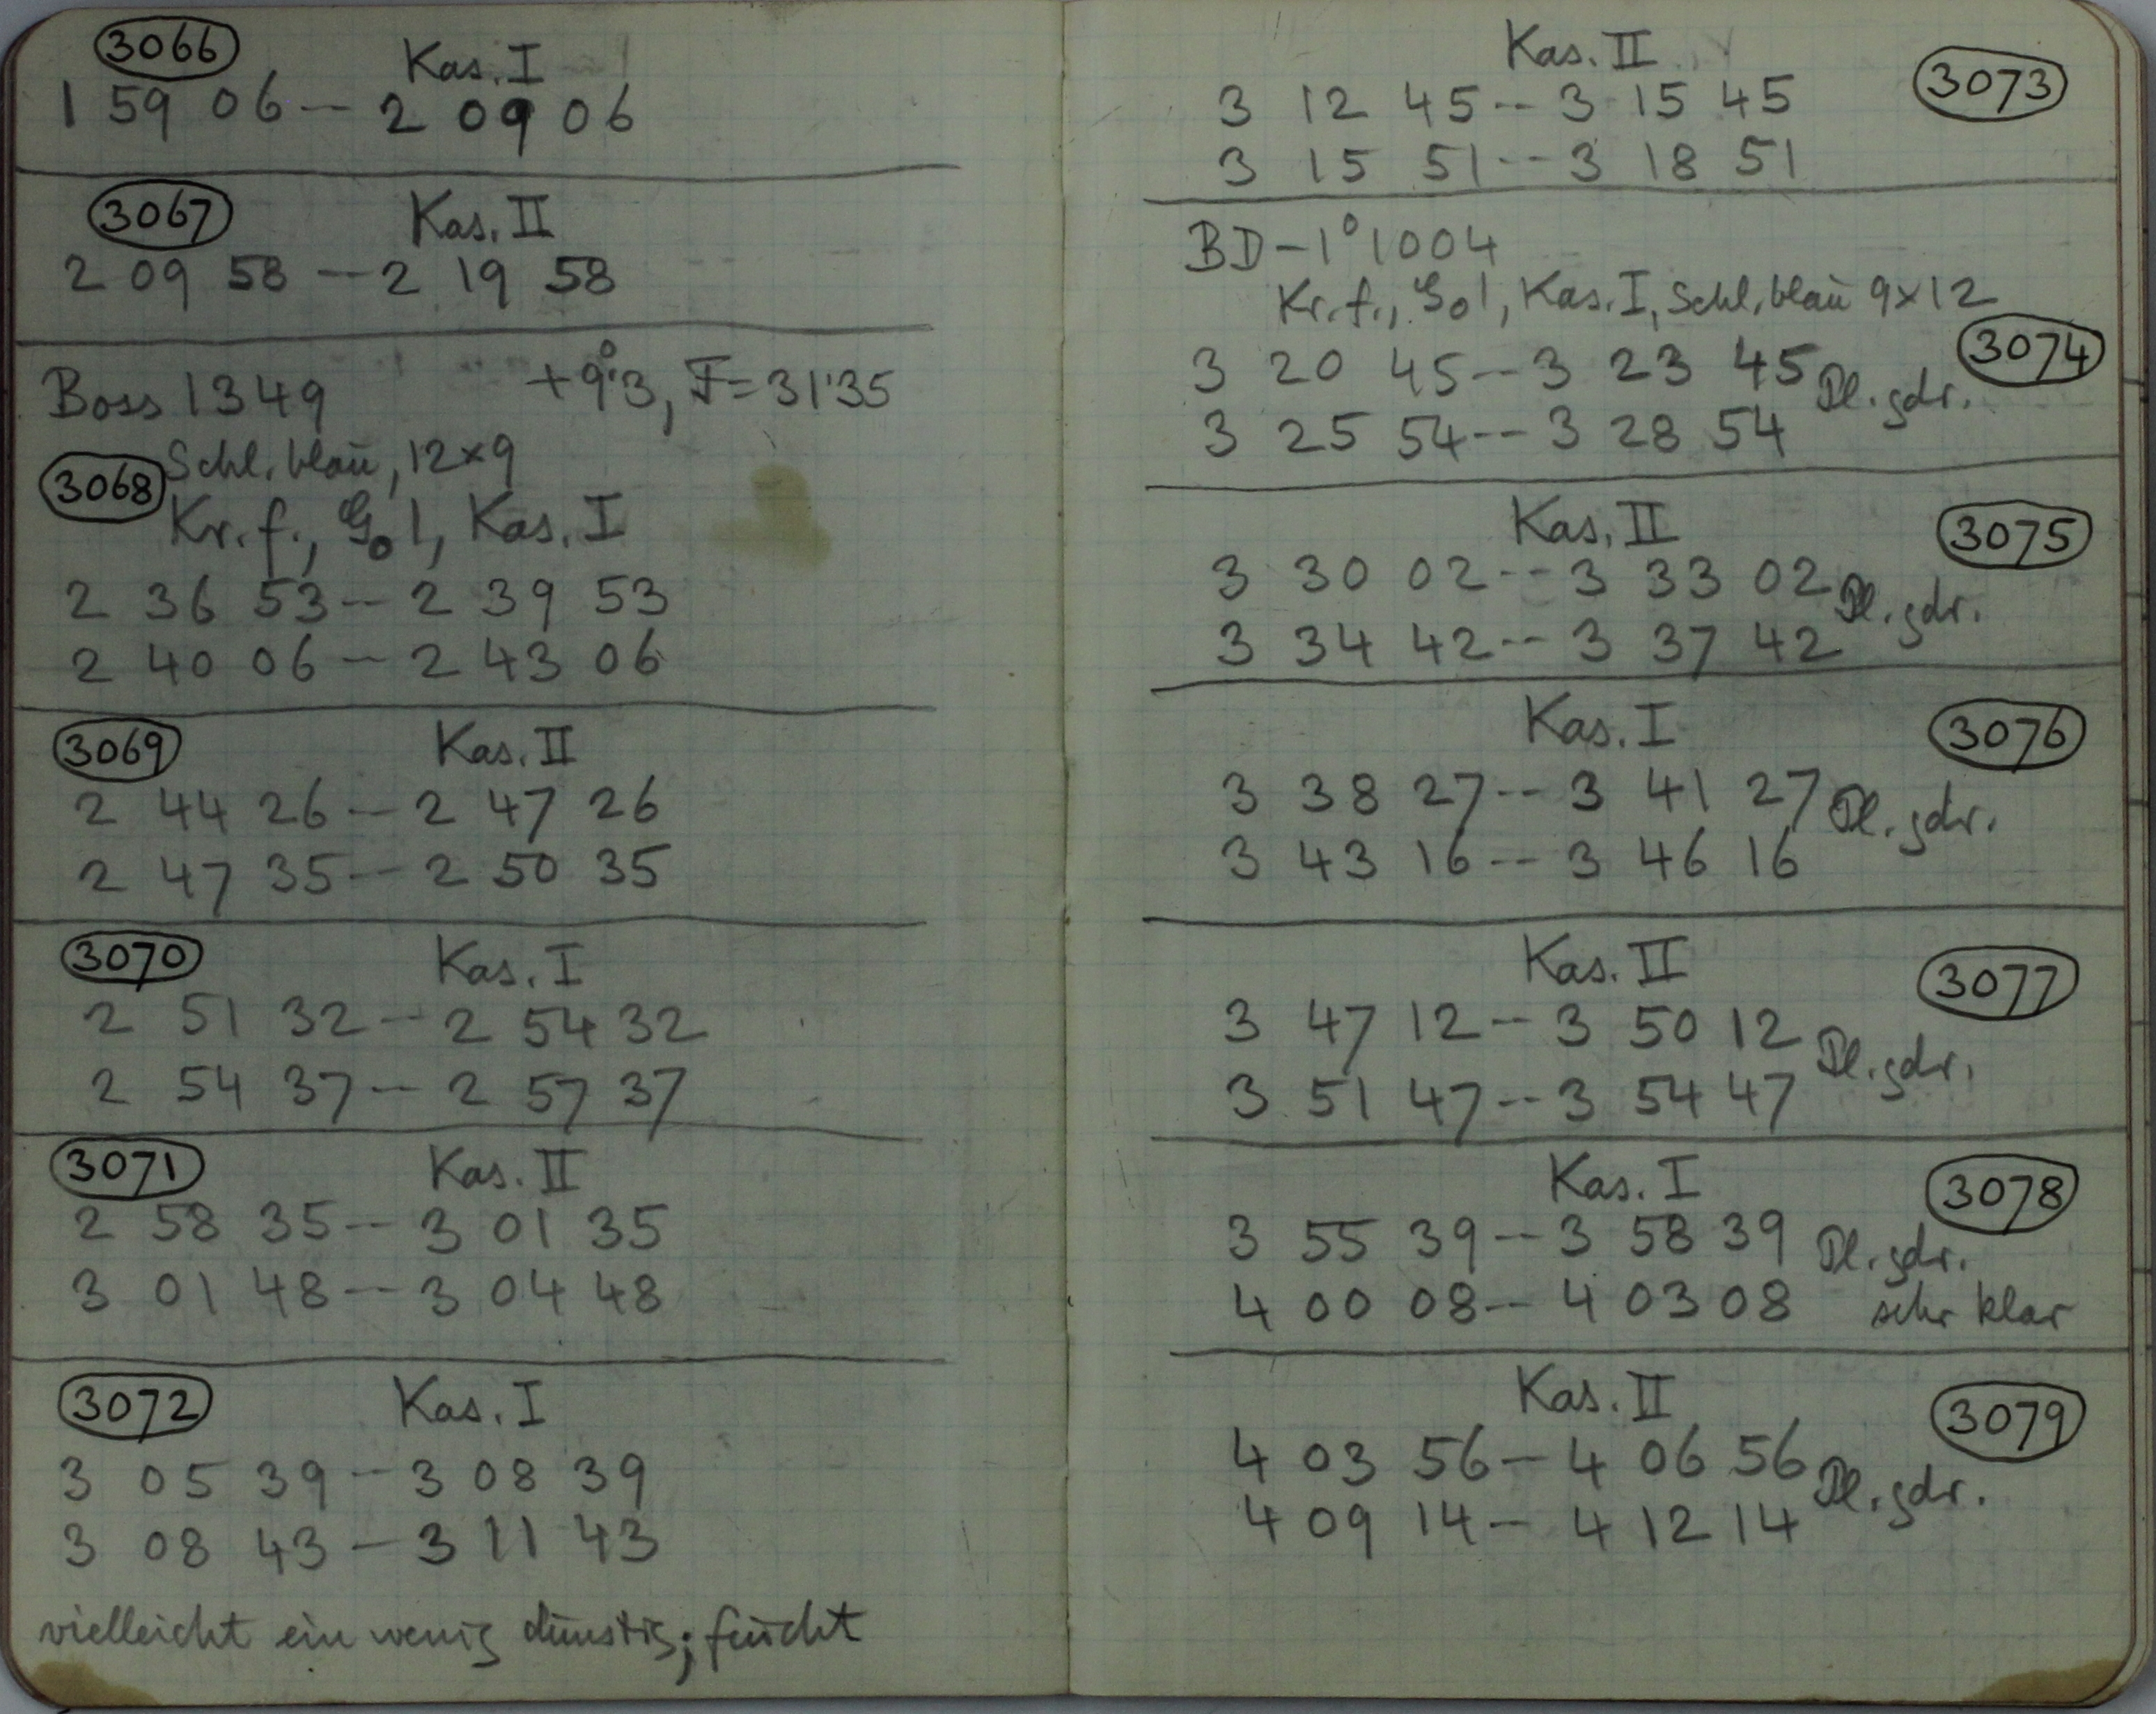 3066 Kas. I
1 59 06 -- 2 09 06
3067 Kas. II
2 09 58 -- 2 19 58
Boss 1349 +9°.3, F=31.35
Schl. blau, 12×9
3068
Kr. f., G0 1, Kas. I
2 36 53 -- 2 39 53
2 40 06 -- 2 43 06
3069 Kas. II
2 44 26 -- 2 47 26
2 47 35 -- 2 50 35
3070 Kas. I
2 51 32 -- 2 54 32
2 54 37 -- 2 57 37
3071 Kas. II
2 58 35 -- 3 01 35
3 01 48 -- 3 04 48
3072 Kas. I
3 05 39 -- 3 08 39
3 08 43 -- 3 11 43
vielleicht ein wenig dunstig; feucht
Kas. II 3073
3 12 45 -- 3 15 45
3 15 51 -- 3 18 51
BD -1° 1004
Kr. f., G0 1, Kas. I, Schl. blau 9×12
3074
3 20 45 -- 3 23 45 Pl. gdr.
3 25 54 -- 3 28 54
Kas. II 3075
3 30 02 -- 3 33 02 Pl. gdr.
3 34 42 -- 3 37 42
Kas. I 3076
3 38 27 -- 3 41 27 Pl. gdr.
3 43 16 -- 3 46 16
Kas. II 3077
3 47 12 -- 3 50 12 Pl. gdr.
3 51 47 -- 3 54 47
Kas. I 3078
3 55 39 -- 3 58 39 Pl. gdr.
4 00 08 -- 4 03 08 sehr klar
Kas. II 3079
4 03 56 -- 4 06 56 Pl. gdr.
4 09 14 -- 4 12 14